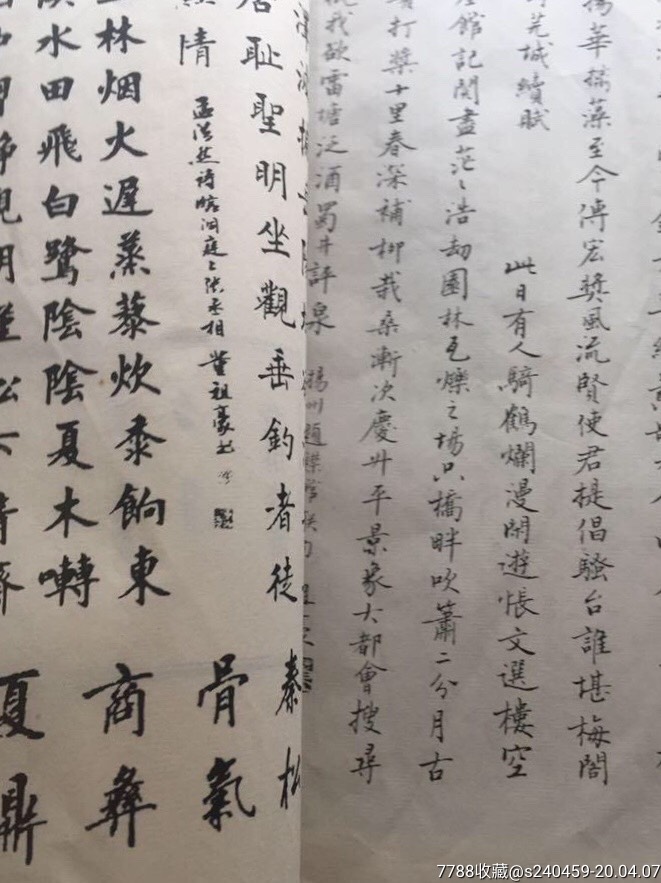 揚華摛藻至今傳宏獎風流賢使君提倡騷台誰堪梅閣
蕪城續賦
此日有人騎鶴爛漫閒遊悵文選樓空
館記閱盡茫々浩劫園林瓦爍之場只橋畔吹簫二分月古
打槳十里春深補柳栽桑漸次慶升平景象大都會搜尋
我欲雷塘泛酒蜀井評泉
揚州題襟館聯
耻聖明坐觀垂釣者徒
情
孟浩然詩臨洞庭上張丞相 董祖豪書
林烟火遲蒸藜炊黍餉東
水田飛白鷺陰陰夏木囀
靜觀朝槿松下清齋
秦松
骨氣
商彝
夏鼎
7788收藏@s240459-20.04.07